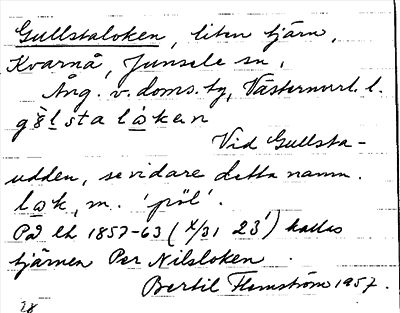 Gullstaloken, liten tjärn,
Kvarnå, Junsele sn,
Ång. v. doms. ty, Västernorrl. l.
gɷ̀lstalo̱ken
Vid Gullsta-
udden, se vidare detta namn.
lo̱k, m. 'pöl'.
På lk 1857-63 (x/31 23') kallas
tjärnen Per Nilsloken.
Bertil Flemström 1957.